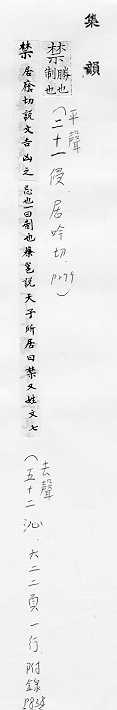 集韻
禁 勝也
制也
(平聲
二十一侵 居吟切 P.279)
禁 居廕切說文吉凶之忌也一曰制也蔡邕說天子所居曰禁又姓文七
(去聲
五十二沁 六二二頁一行 附錄